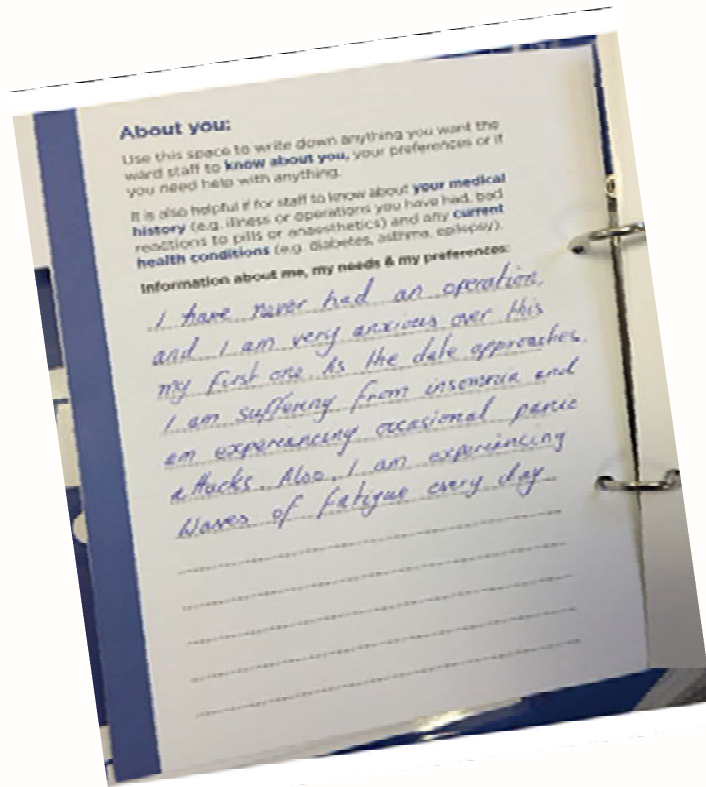 About you:
Use this space to write down anything you want the
ward staff to know about you, your preferences or if
you need help with anything.
It is also helpful if for staff to know about your medical
history (e.g. illness or operations you have had, bad
reactions to pills or anaesthetics) and any current
health conditions (e.g. diabetes, asthma, epilepsy).
Information about me, my needs & my preferences:
I have never had an operation,
and I am very anxious over this
my first one. As the date approaches,
I am suffering from insomnia and
am experiancing occasional panic
attacks. Also, I am experiancing
waves of fatigue every day